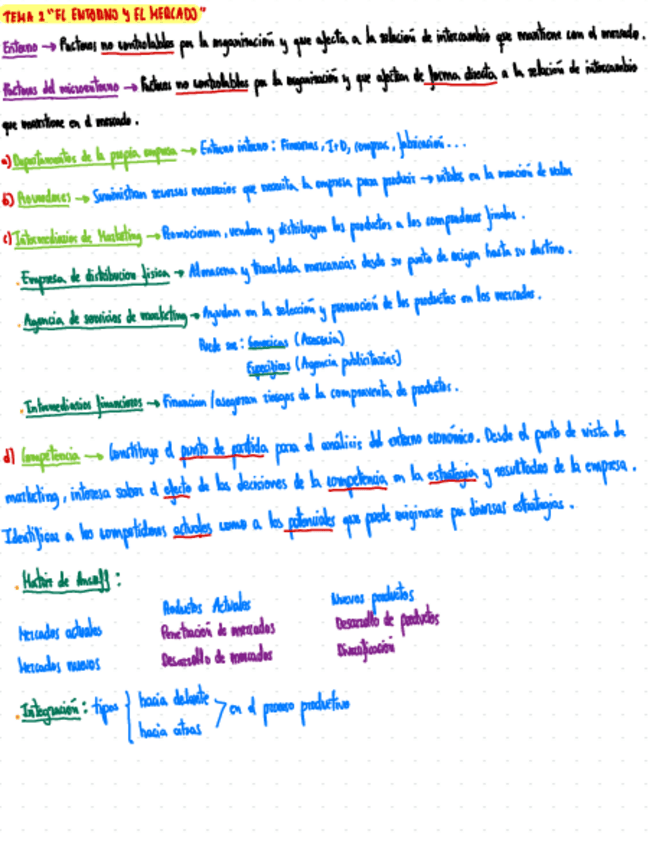 TEMA 2 "EL ENTORNO Y EL MERCADO"
Entorno → Factores no controlables por la organización y que afecta a la relación de intercambio que mantiene con el mercado.
Factores del microentorno → Factores no controlables por la organización y que afectan de forma directa a la relación de intercambio
que mantiene en el mercado.
a) Departamentos de la propia empresa → Entorno interno: Finanzas, I+D, compras, fabricación...
b) Proveedores → Suministran recursos necesarios que necesita la empresa para producir → vitales en la creación de valor
c) Intermediarios de Marketing → Promocionan, venden y distribuyen los productos a los compradores finales.
. Empresa de distribucion fisica → Almacena y translada mercancias desde su punto de origen hasta su destino.
. Agencia de servicios de marketing → Ayudan en la selección y promoción de los productos en los mercados.
Puede ser: Genericas (Asesoria)
Específicas (Agencia publicitarias)
. Intermediarios financieros → Financian / aseguran riesgos de la compraventa de productos.
d) Competencia → Constituye el punto de partida para el análisis del entorno económico. Desde el punto de vista de
marketing, interesa saber el efecto de las decisiones de la competencia en la estrategia y resultados de la empresa.
Identificar a los competidores actuales como a los potenciales que puede originarse por diversas estrategias.
. Matriz de Ansoff:
Productos Actuales Nuevos productos
Mercados actuales Penetración de mercados Desarrollo de productos
Mercados nuevos Desarrollo de mercados Diversificación
. Integración: tipos { hacia delante > en el proceso productivo
hacia atras